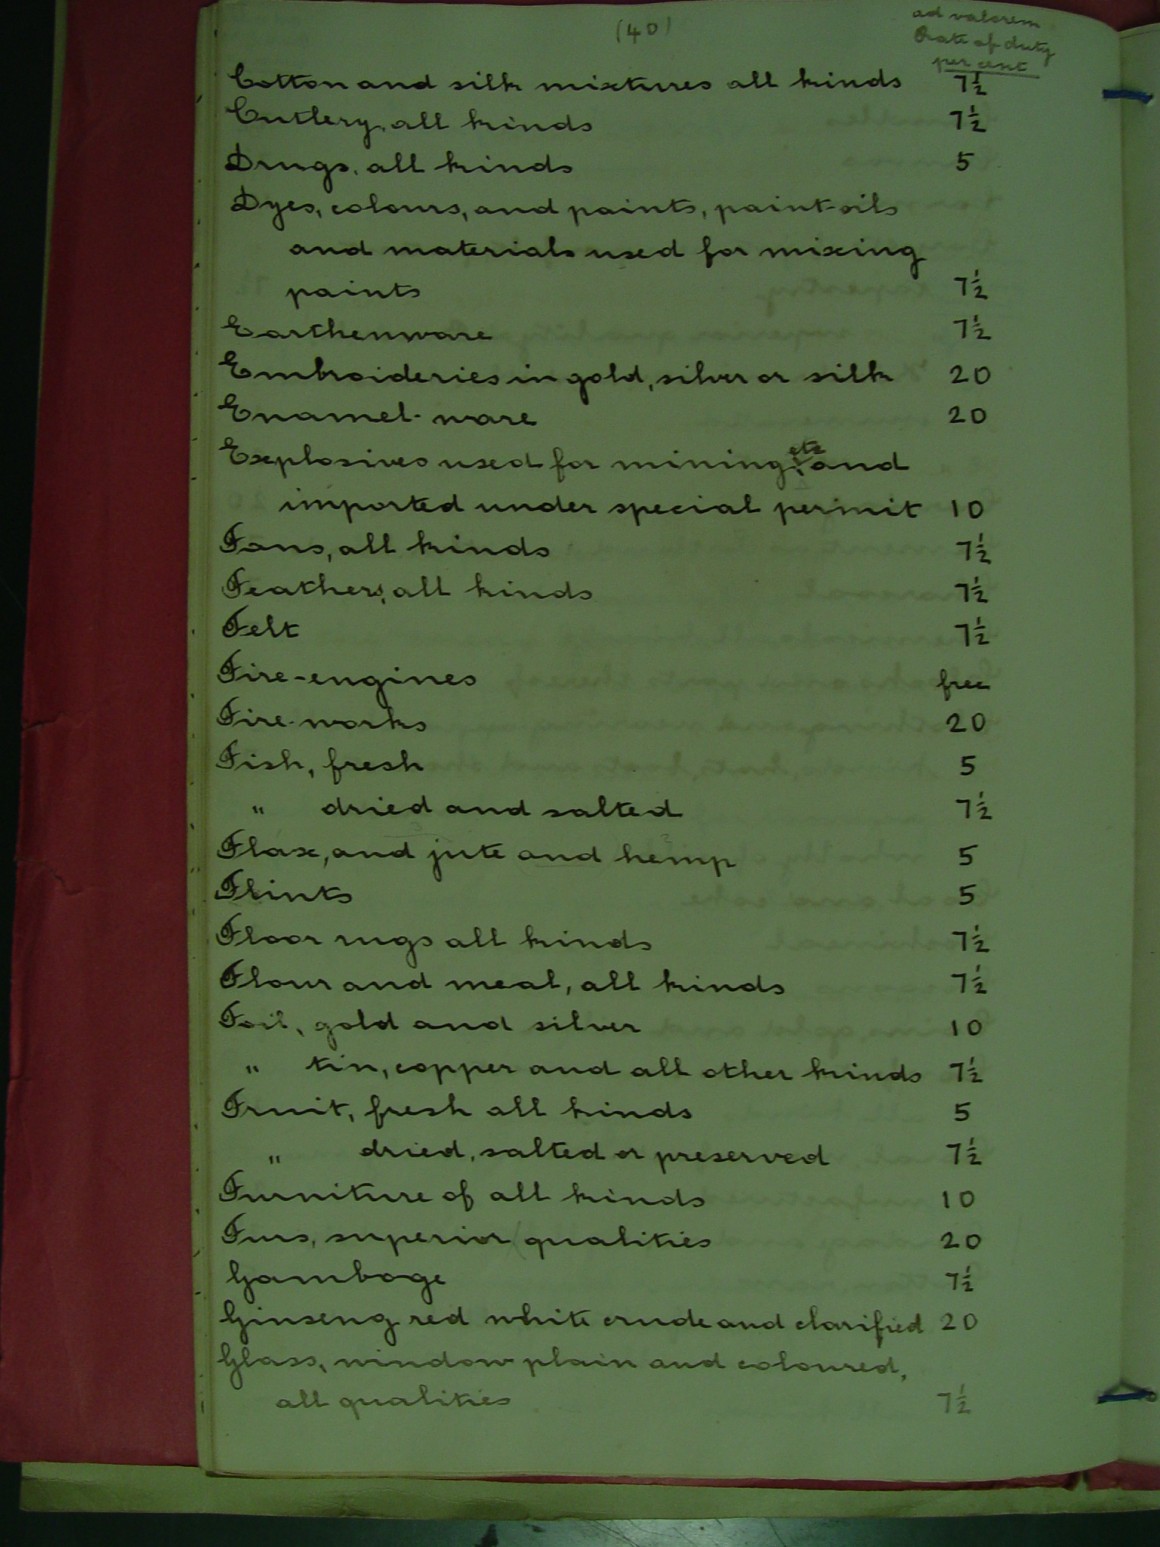 (40)
ad valorem
Rate of duty
per cent
Cotton and silk mixtures all kinds 7½
Cutlery, all kinds 7½
Drugs, all kinds 5
Dyes, colours, and paints, paint-oils
and materials used for mixing
paints 7½
Earthenware 7½
Embroideries in gold, silver or silk 20
Enamel-ware 20
Explosives used for mining, etc and
imported under special permit 10
Fans, all kinds 7½
Feathers, all kinds 7½
Felt 7½
Fire-engines free
Fire-works 20
Fish, fresh 5
" dried and salted 7½
Flax, and jute and hemp 5
Flints 5
Floor rugs all kinds 7½
Flour and meal, all kinds 7½
Foil, gold and silver 10
" tin, copper and all other kinds 7½
Fruit, fresh all kinds 5
" dried, salted or preserved 7½
Furniture of all kinds 10
Furs, superior qualities 20
Gamboge 7½
Ginseng red white crude and clarified 20
Glass, window plain and coloured,
all qualities 7½